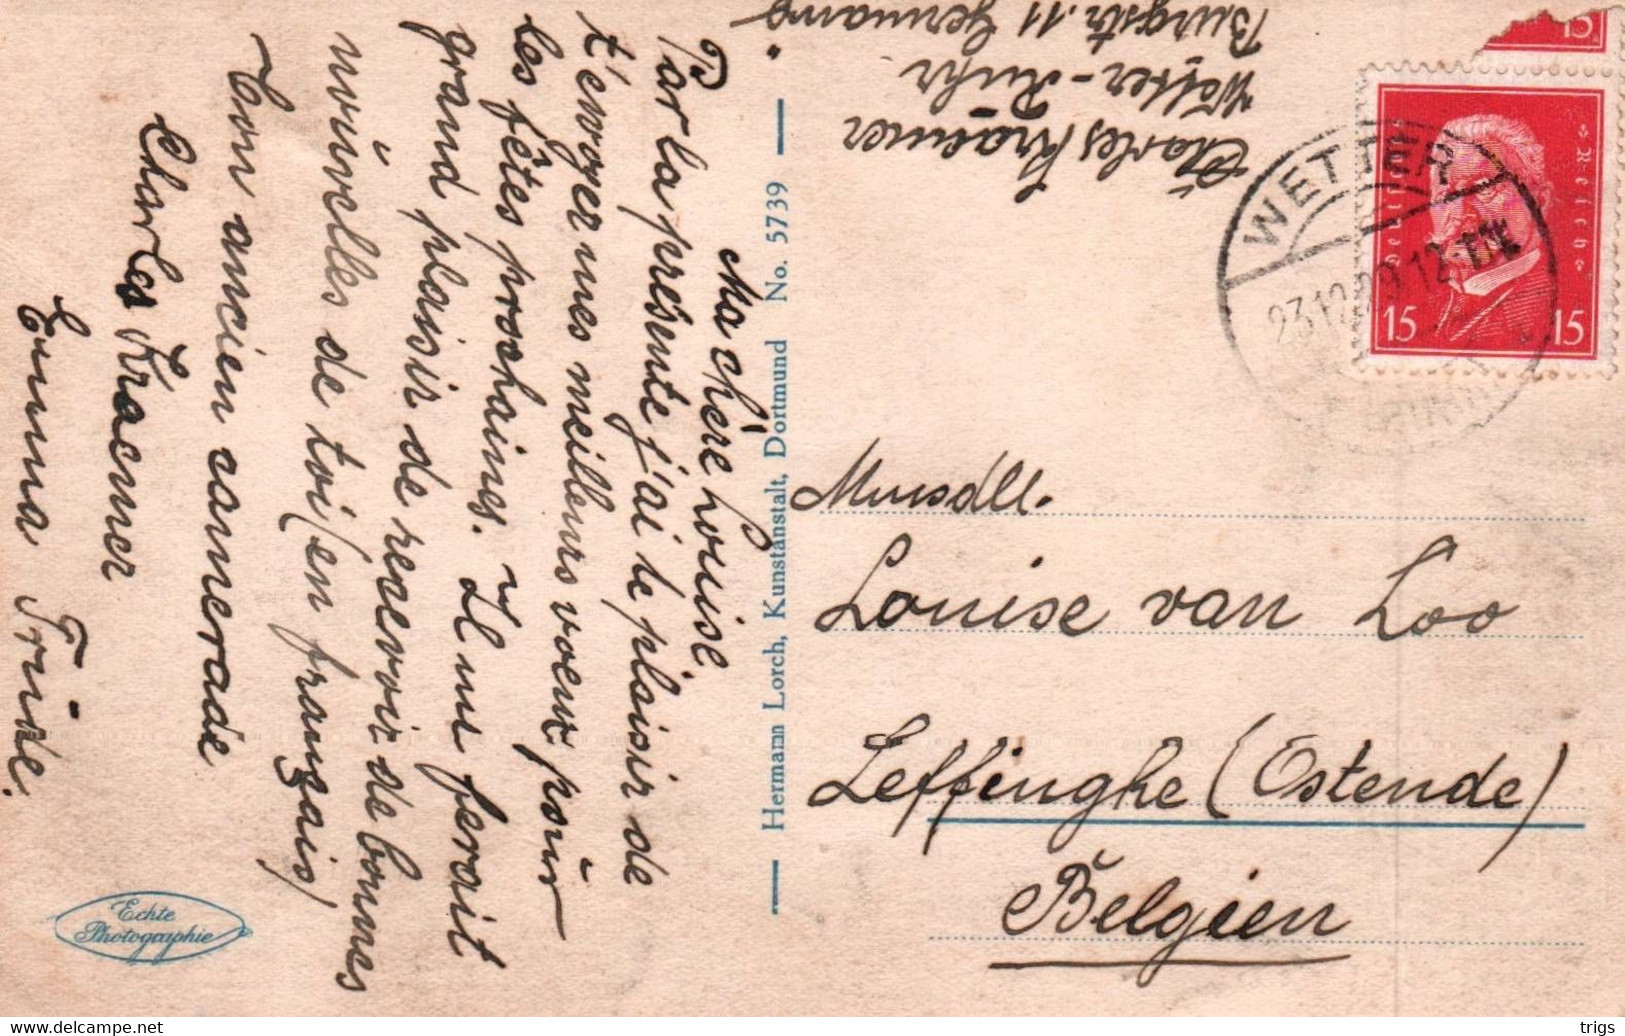 Ma chère Louise.
Par la présente j'ai le plaisir de
t'envoyer mes meilleurs voeux pour
les fêtes prochaines. Il me ferait
grand plaisir de recevoir de bonnes
nouvelles de toi (en français)
Ton ancien camerade
Charles Kraemer
Emma Friede.
Echte
Photographie
Hermann Lorch, Kunstanstalt, Dortmund No. 5739
Charles Kraemer
Wetter-Ruhr
Burgstr. 11 Germany
WETTER
23.12.29.12
15
Deutsches Reich
15 15
Louise van Loo
Leffinghe (Ostende)
Belgien
delcampe.net
trigs